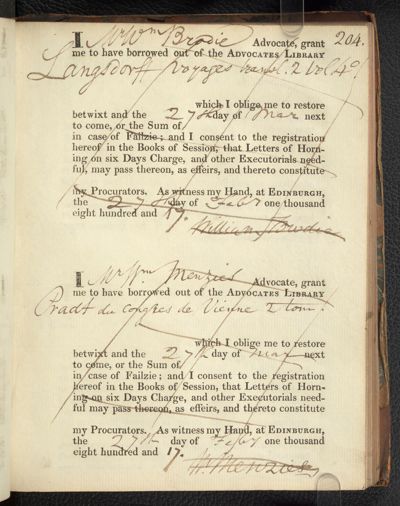 204.
I Mr Wm Brodie Advocate, grant
me to have borrowed out of the ADVOCATES LIBRARY
Langsdorff voyages transl. 2 vol 4o.
which I oblige me to restore
betwixt and the 27th day of Mar next
to come, or the Sum of
in case of Failzie; and I consent to the registration
hereof in the Books of Session, that Letters of Horn-
ing on six Days Charge, and other Executorials need-
ful, may pass thereon, as effeirs, and thereto constitute
my Procurators. As witness my Hand, at EDINBURGH,
the 27th day of Feby one thousand
eight hundred and 17.
William Brodie
I Mr Wm Menzies Advocate, grant
me to have borrowed out of the ADVOCATES LIBRARY
Pradt du Congres de Vienne 2 tom.
which I oblige me to restore
betwixt and the 27th day of Mar next
to come, or the Sum of
in case of Failzie; and I consent to the registration
hereof in the Books of Session, that Letters of Horn-
ing on six Days Charge, and other Executorials need-
ful may pass thereon, as effeirs, and thereto constitute
my Procurators. As witness my Hand, at EDINBURGH,
the 27th day of Feby one thousand
eight hundred and 17.
W. Menzies